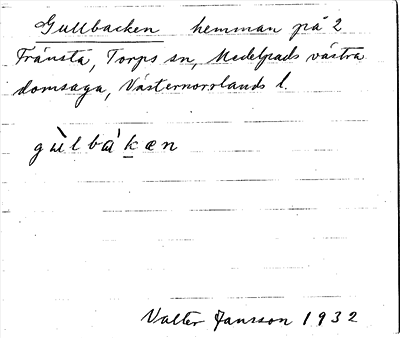 Gullbacken hemman på 2
Fränsta, Torps sn, Medelpads västra
domsaga, Västernorrlands l.
gùlbàkæn
Valter Jansson 1932